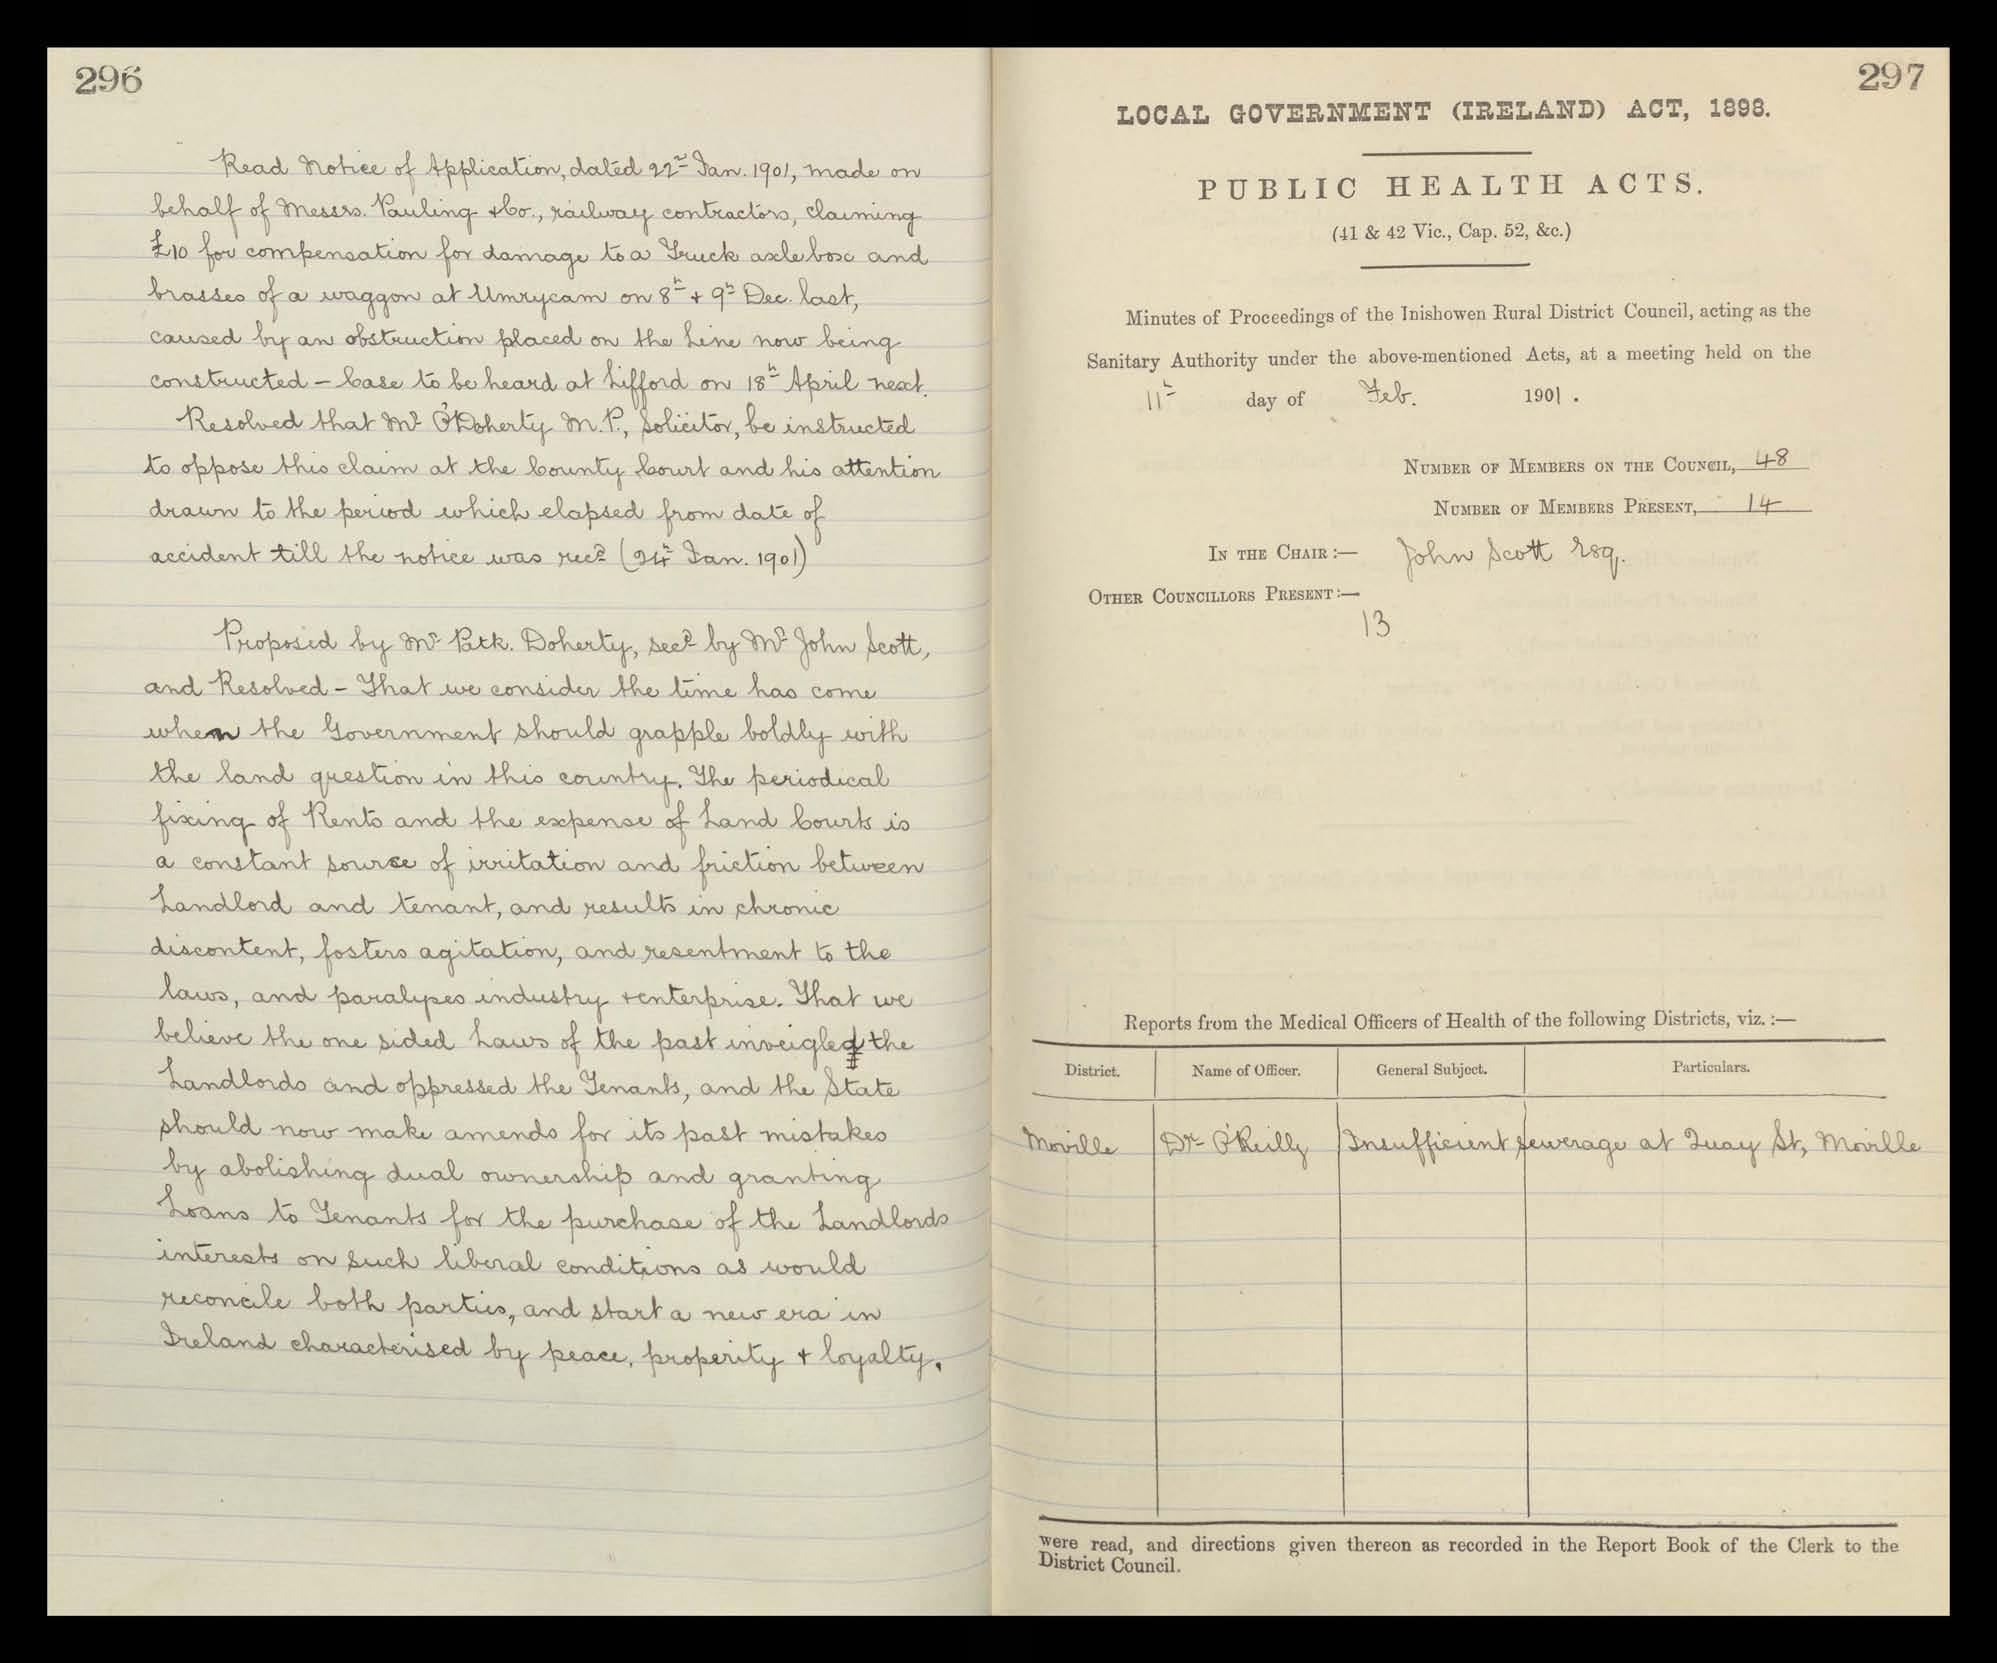 296
Read Notice of Application, dated 22nd Jan. 1901, made on
behalf of Messrs. Pauling & Co., railway contractors, claiming
£10 for compensation for damage to a Truck axle box and
brasses of a waggon at Umrycam on 8th & 9th Dec. last,
caused by an obstruction placed on the Line now being
constructed – Case to be heard at Lifford on 18th April next.
Resolved that Mr O'Doherty M.P., Solicitor, be instructed
to oppose this claim at the County Court and his attention
drawn to the period which elapsed from date of
accident till the notice was recd (24th Jan. 1901)
Proposed by Mr Patk. Doherty, secd by Mr John Scott,
and Resolved – That we consider the time has come
when the Government should grapple boldly with
the land question in this country. The periodical
fixing of Rents and the expense of Land Courts is
a constant source of irritation and friction between
Landlord and tenant, and results in chronic
discontent, fosters agitation, and resentment to the
laws, and paralyses industry & enterprise. That we
believe the one sided Laws of the past inveigled the
Landlords and oppressed the Tenants, and the State
should now make amends for its past mistakes
by abolishing dual ownership and granting
Loans to Tenants for the purchase of the Landlords
interests on such liberal conditions as would
reconcile both parties, and start a new era in
Ireland characterised by peace, properity & loyalty.
297
LOCAL GOVERNMENT (IRELAND) ACT, 1898.
PUBLIC HEALTH ACTS.
(41 & 42 Vic., Cap. 52, &c.)
Minutes of Proceedings of the Inishowen Rural District Council, acting as the
Sanitary Authority under the above-mentioned Acts, at a meeting held on the
11th day of Feb. 1901.
NUMBER OF MEMBERS ON THE COUNCIL, 48
NUMBER OF MEMBERS PRESENT, 14
IN THE CHAIR:— John Scott Esq.
OTHER COUNCILLORS PRESENT:—
13
Reports from the Medical Officers of Health of the following Districts, viz.:—
District. Name of Officer. General Subject. Particulars.
Moville Dr O'Reilly Insufficient sewerage at Quay St, Moville
were read, and directions given thereon as recorded in the Report Book of the Clerk to the
District Council.